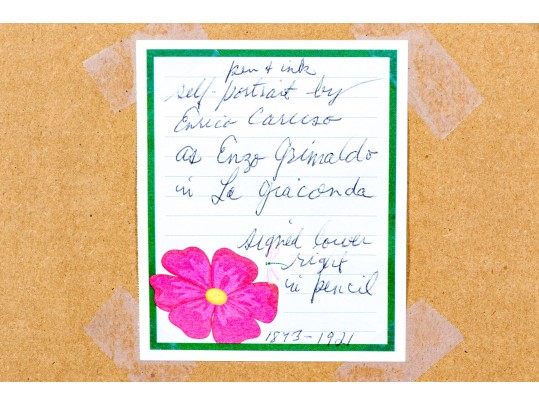 pen & ink
self-portrait by
Enrico Caruso
as Enzo Grimaldo
in La Giaconda
signed lower
right
in pencil
1873-1921